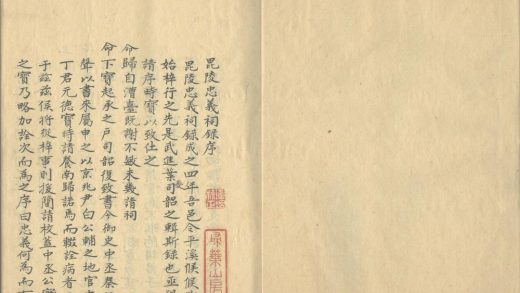 毘陵忠義祠錄序
毘陵忠義祠錄成之四年吾邑令平溪候候
始梓行之先是武進葉司韶之輯斯錄也
請序時寶以致仕之
命歸自漕臺既謝不敏未幾請祠
命下寶起承之戶司韶復致書今御史中丞
聲以書來屬申之以京兆尹白公輔之地官
丁君元德寶時請養南歸諾焉而輟詮病者
于茲茲侯將從梓事則援簡請校蓋中丞公
之寶乃略加詮次而為之序曰忠義何為而
掃葉山房